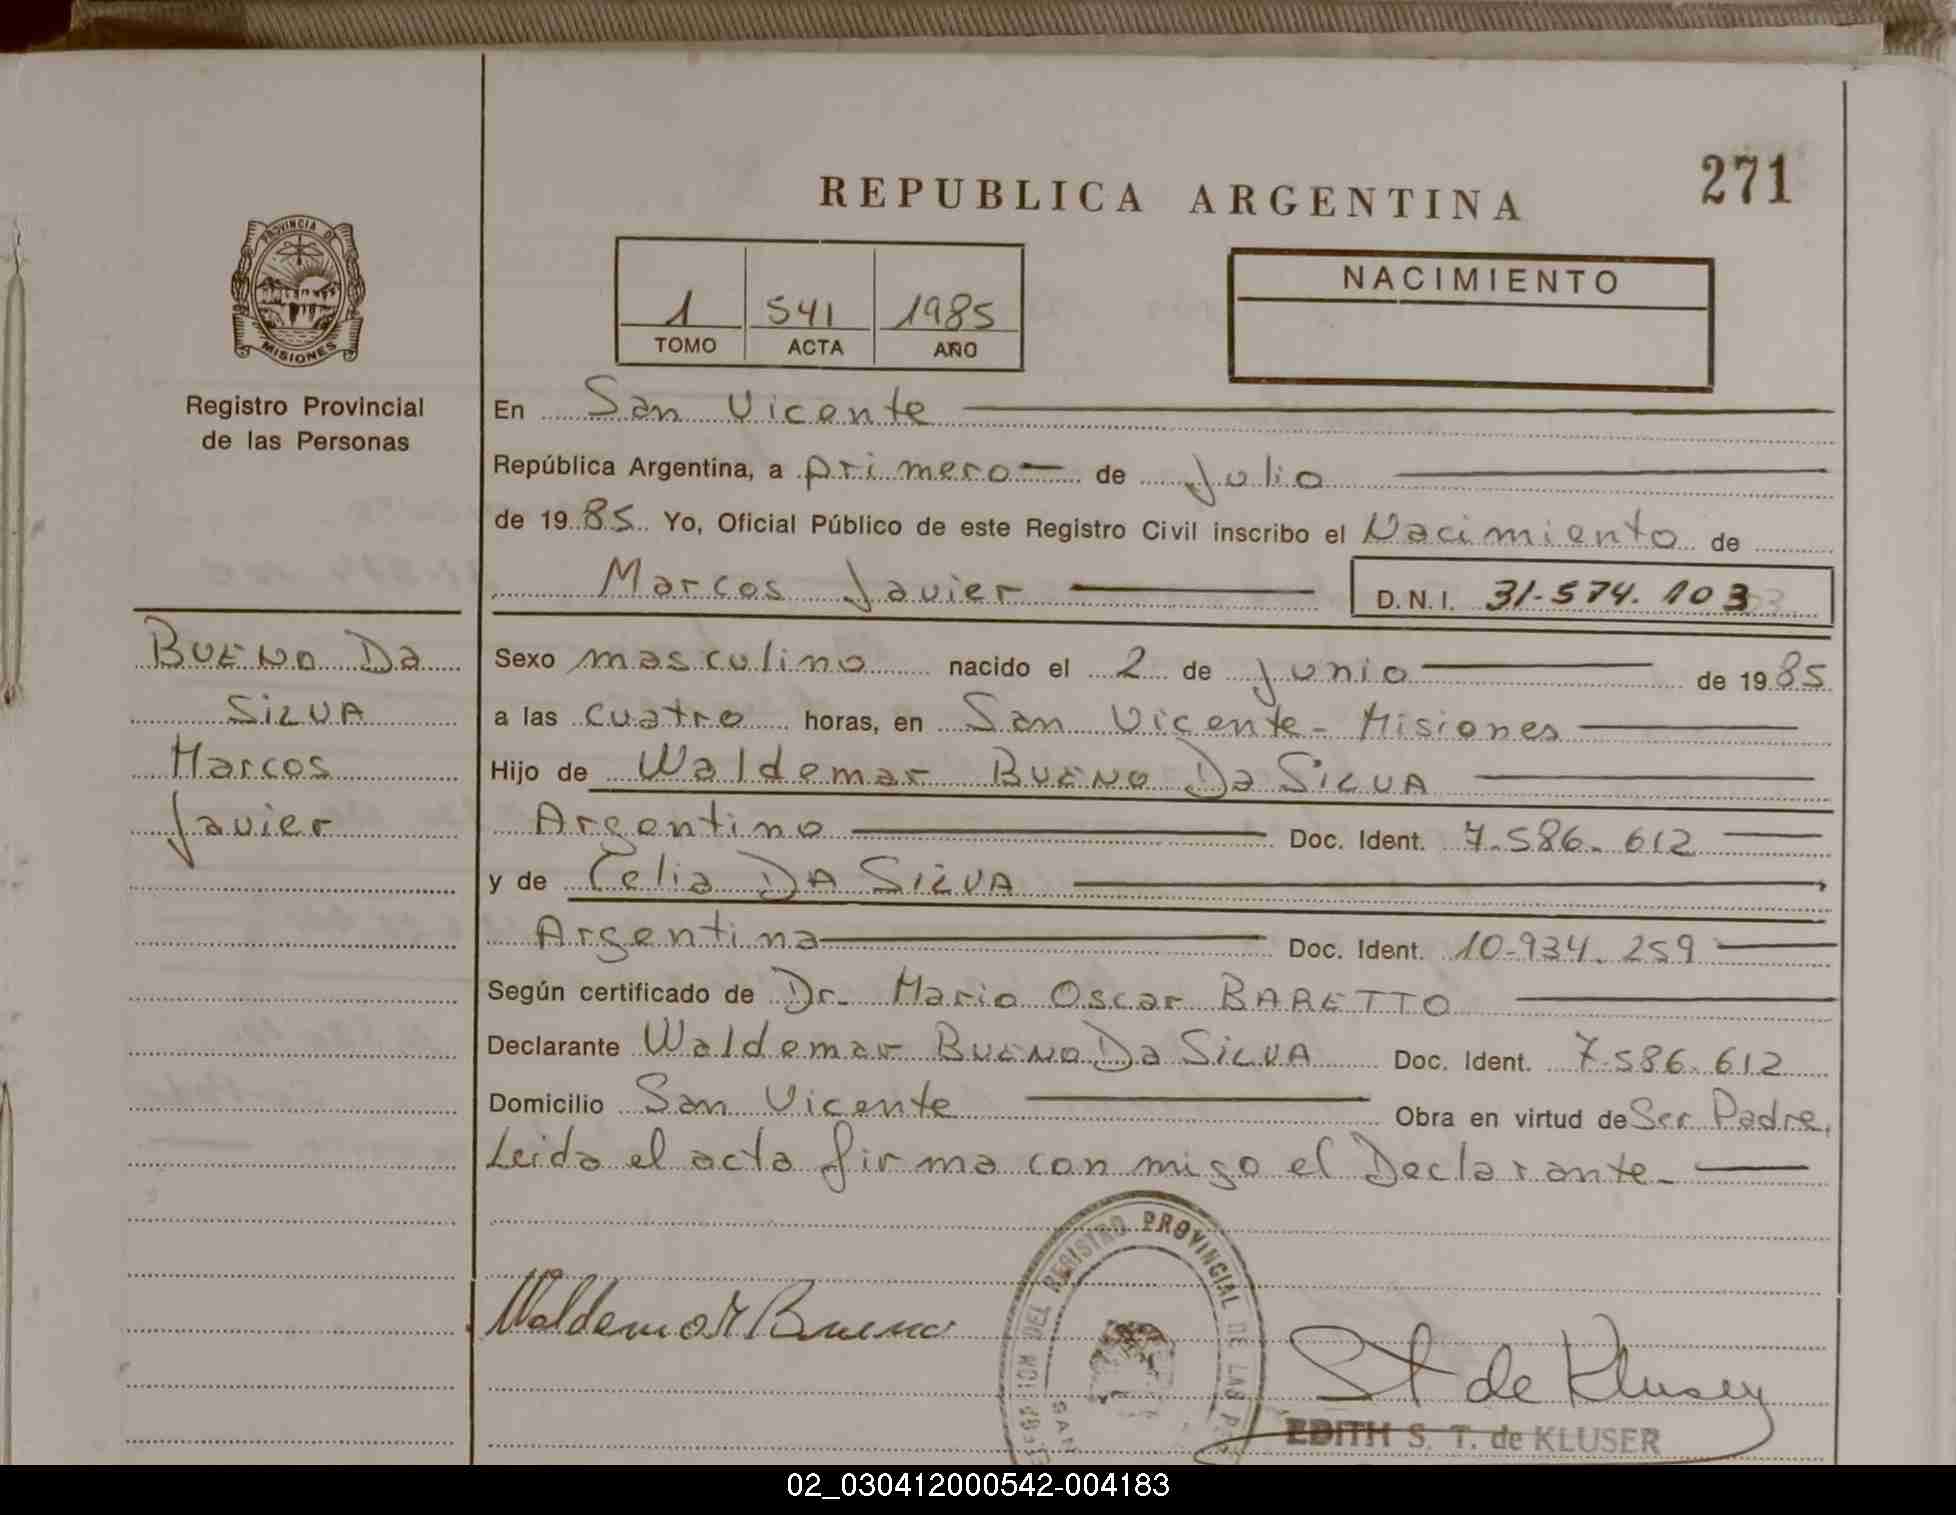 271
REPUBLICA ARGENTINA
PROVINCIA DE
MISIONES
Registro Provincial
de las Personas
1 541 1985
TOMO ACTA AÑO
NACIMIENTO
En San Vicente
República Argentina, a primero de Julio
de 1985 Yo, Oficial Público de este Registro Civil inscribo el Nacimiento de
Marcos Javier
D.N.I. 31-574.103
BUENO Da
SILVA
Marcos
Javier
Sexo masculino nacido el 2 de junio de 1985
a las cuatro horas, en San Vicente - Misiones
Hijo de Waldemar BUENO Da SILVA
Argentino Doc. Ident. 7.586.612
y de Celia DA SILVA
Argentina Doc. Ident. 10-934.259
Según certificado de Dr. Mario Oscar BARETTO
Declarante Waldemar BUENO Da SILVA Doc. Ident. 7.586.612
Domicilio San Vicente Obra en virtud de Ser Padre,
Leida el acta firma con migo el Declarante.
Waldemar Bueno
DEL REGISTRO PROVINCIAL DE LAS
SAN
St de Kluser
EDITH S. T. de KLUSER
02_030412000542-004183